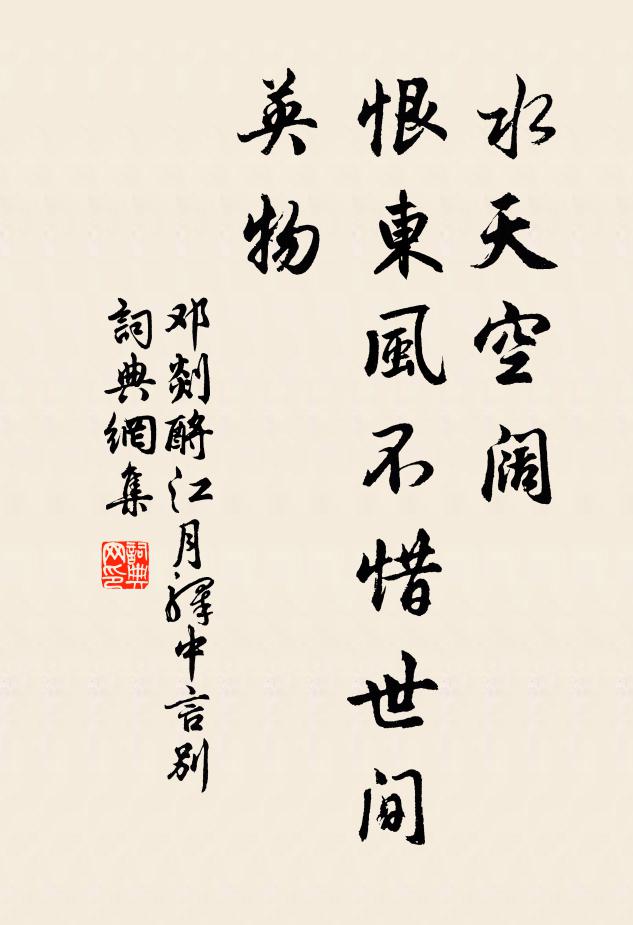 水天空阔
恨東風不惜世间
英物
邓剡酹江月驛中言别
詞典網集
詞典网印